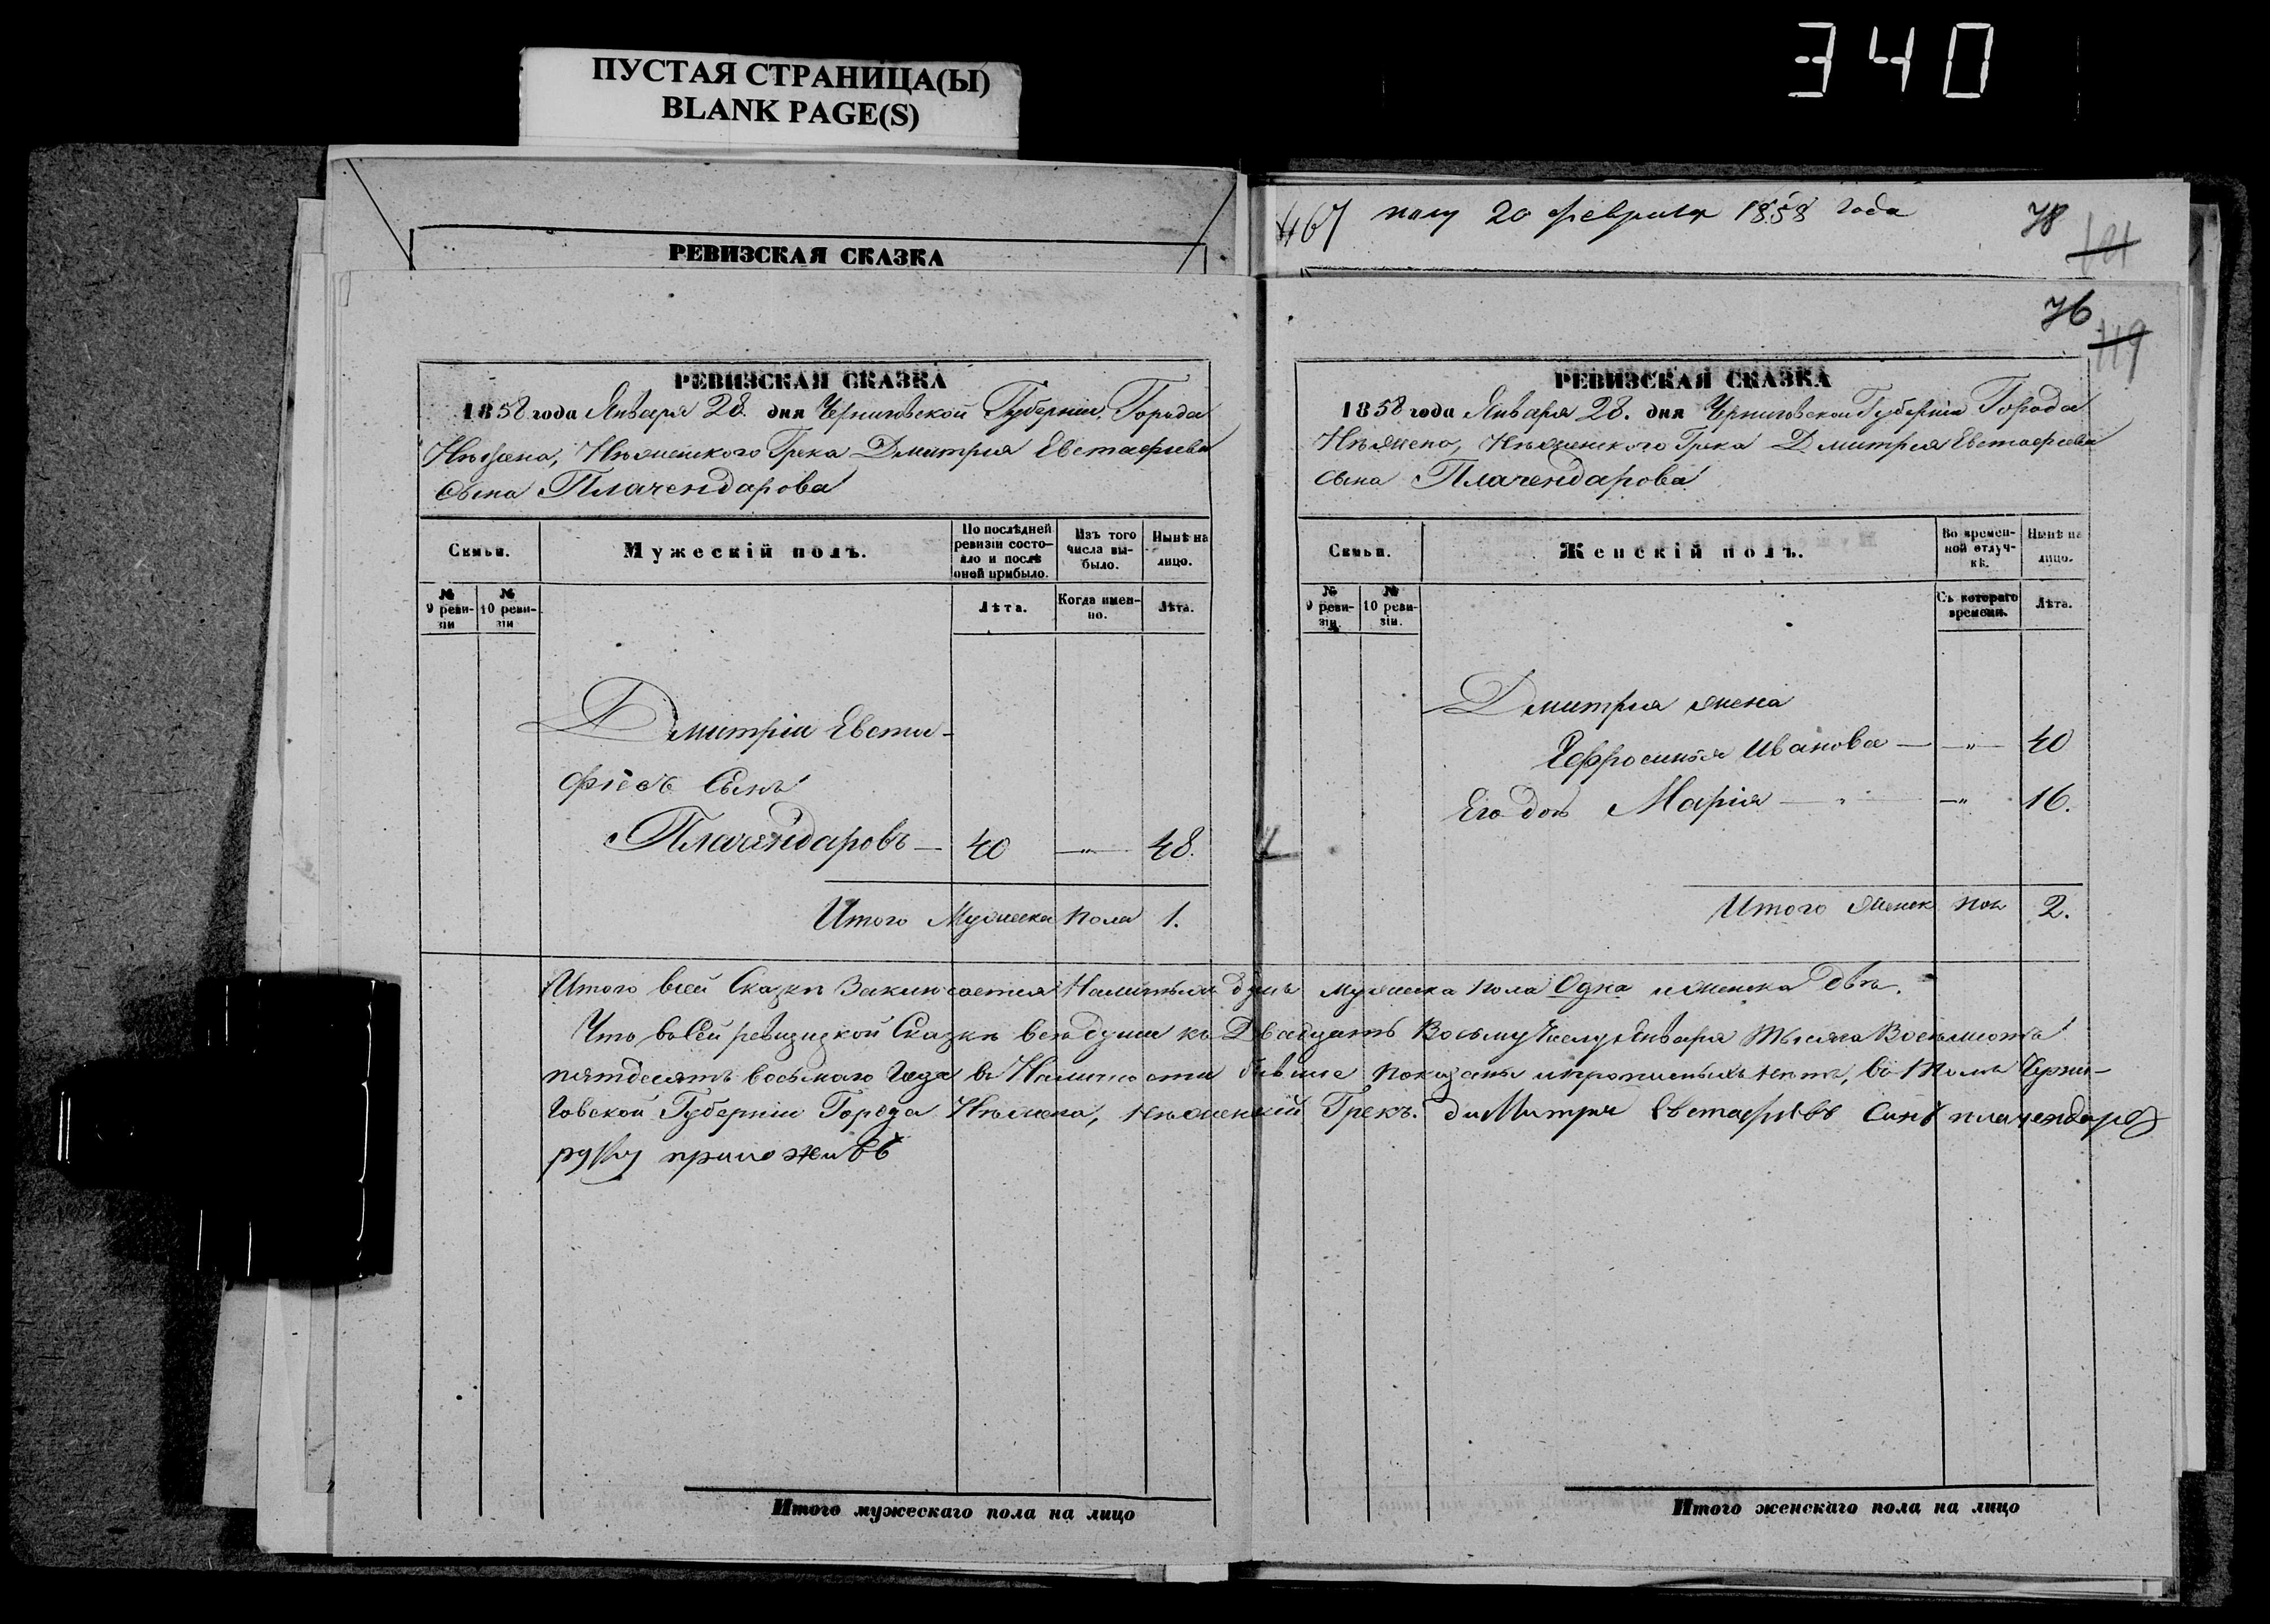 340
ПУСТАЯ СТРАНИЦА(Ы)
BLANK PAGE(S)
РЕВИЗСКАЯ СКАЗКА
РЕВИЗСКАЯ СКАЗКА
1858 года Января 28. дня Черниговской Губерніи, Города
Нѣжена, Нѣженского Грека Дмитрия Евстафиева
Сына Плачендарова
Семьи.
Мужескій полъ.
По послѣдней ревизіи состояло и послѣ оной прибыло.
Изъ того числа выбыло.
Нынѣ на лицо.
№ 9 ревизіи
№ 10 ревизіи
Лѣта.
Когда именно.
Лѣта.
Дмитрій Евста-
фіевъ Сынъ
Плачендаровъ — 40 — „ — 48.
Итого Мужеска пола 1.
467 полу 20 февраля 1858 года
78
121
76
119
РЕВИЗСКАЯ СКАЗКА
1858 года Января 28. дня Черниговской Губерніи Города
Нѣжена, Нѣженского Грека Дмитрия Евстафиева
сына Плачендарова
Семьи.
Женскій полъ.
Во временной отлучкѣ.
Нынѣ на лицо.
№ 9 ревизіи.
№ 10 ревизіи.
Съ котораго времени.
Лѣта.
Дмитрия жена
Ефросинія Иванова — „ — 40
Его дочь Марія — „ — „ 16.
Итого женск пол 2.
Итого всей Сказкѣ Заключается Наличныхъ душъ мужеска пола Одна и женска Двѣ.
Что въ сей ревизской Сказкѣ всѣ души къ Двадцать Восьму числу Января Тысяча Восемьсотъ
пятдесятъ восьмаго Года въ Наличности бывшие показаны и прописныхъ нетъ, въ томъ Черни-
говской Губерніи Города Нѣжена, нѣженскій Грекъ. диМитри Евстафiевъ Синъ плачендаро
руку приложивъ
Итого мужескаго пола на лицо
Итого женскаго пола на лицо